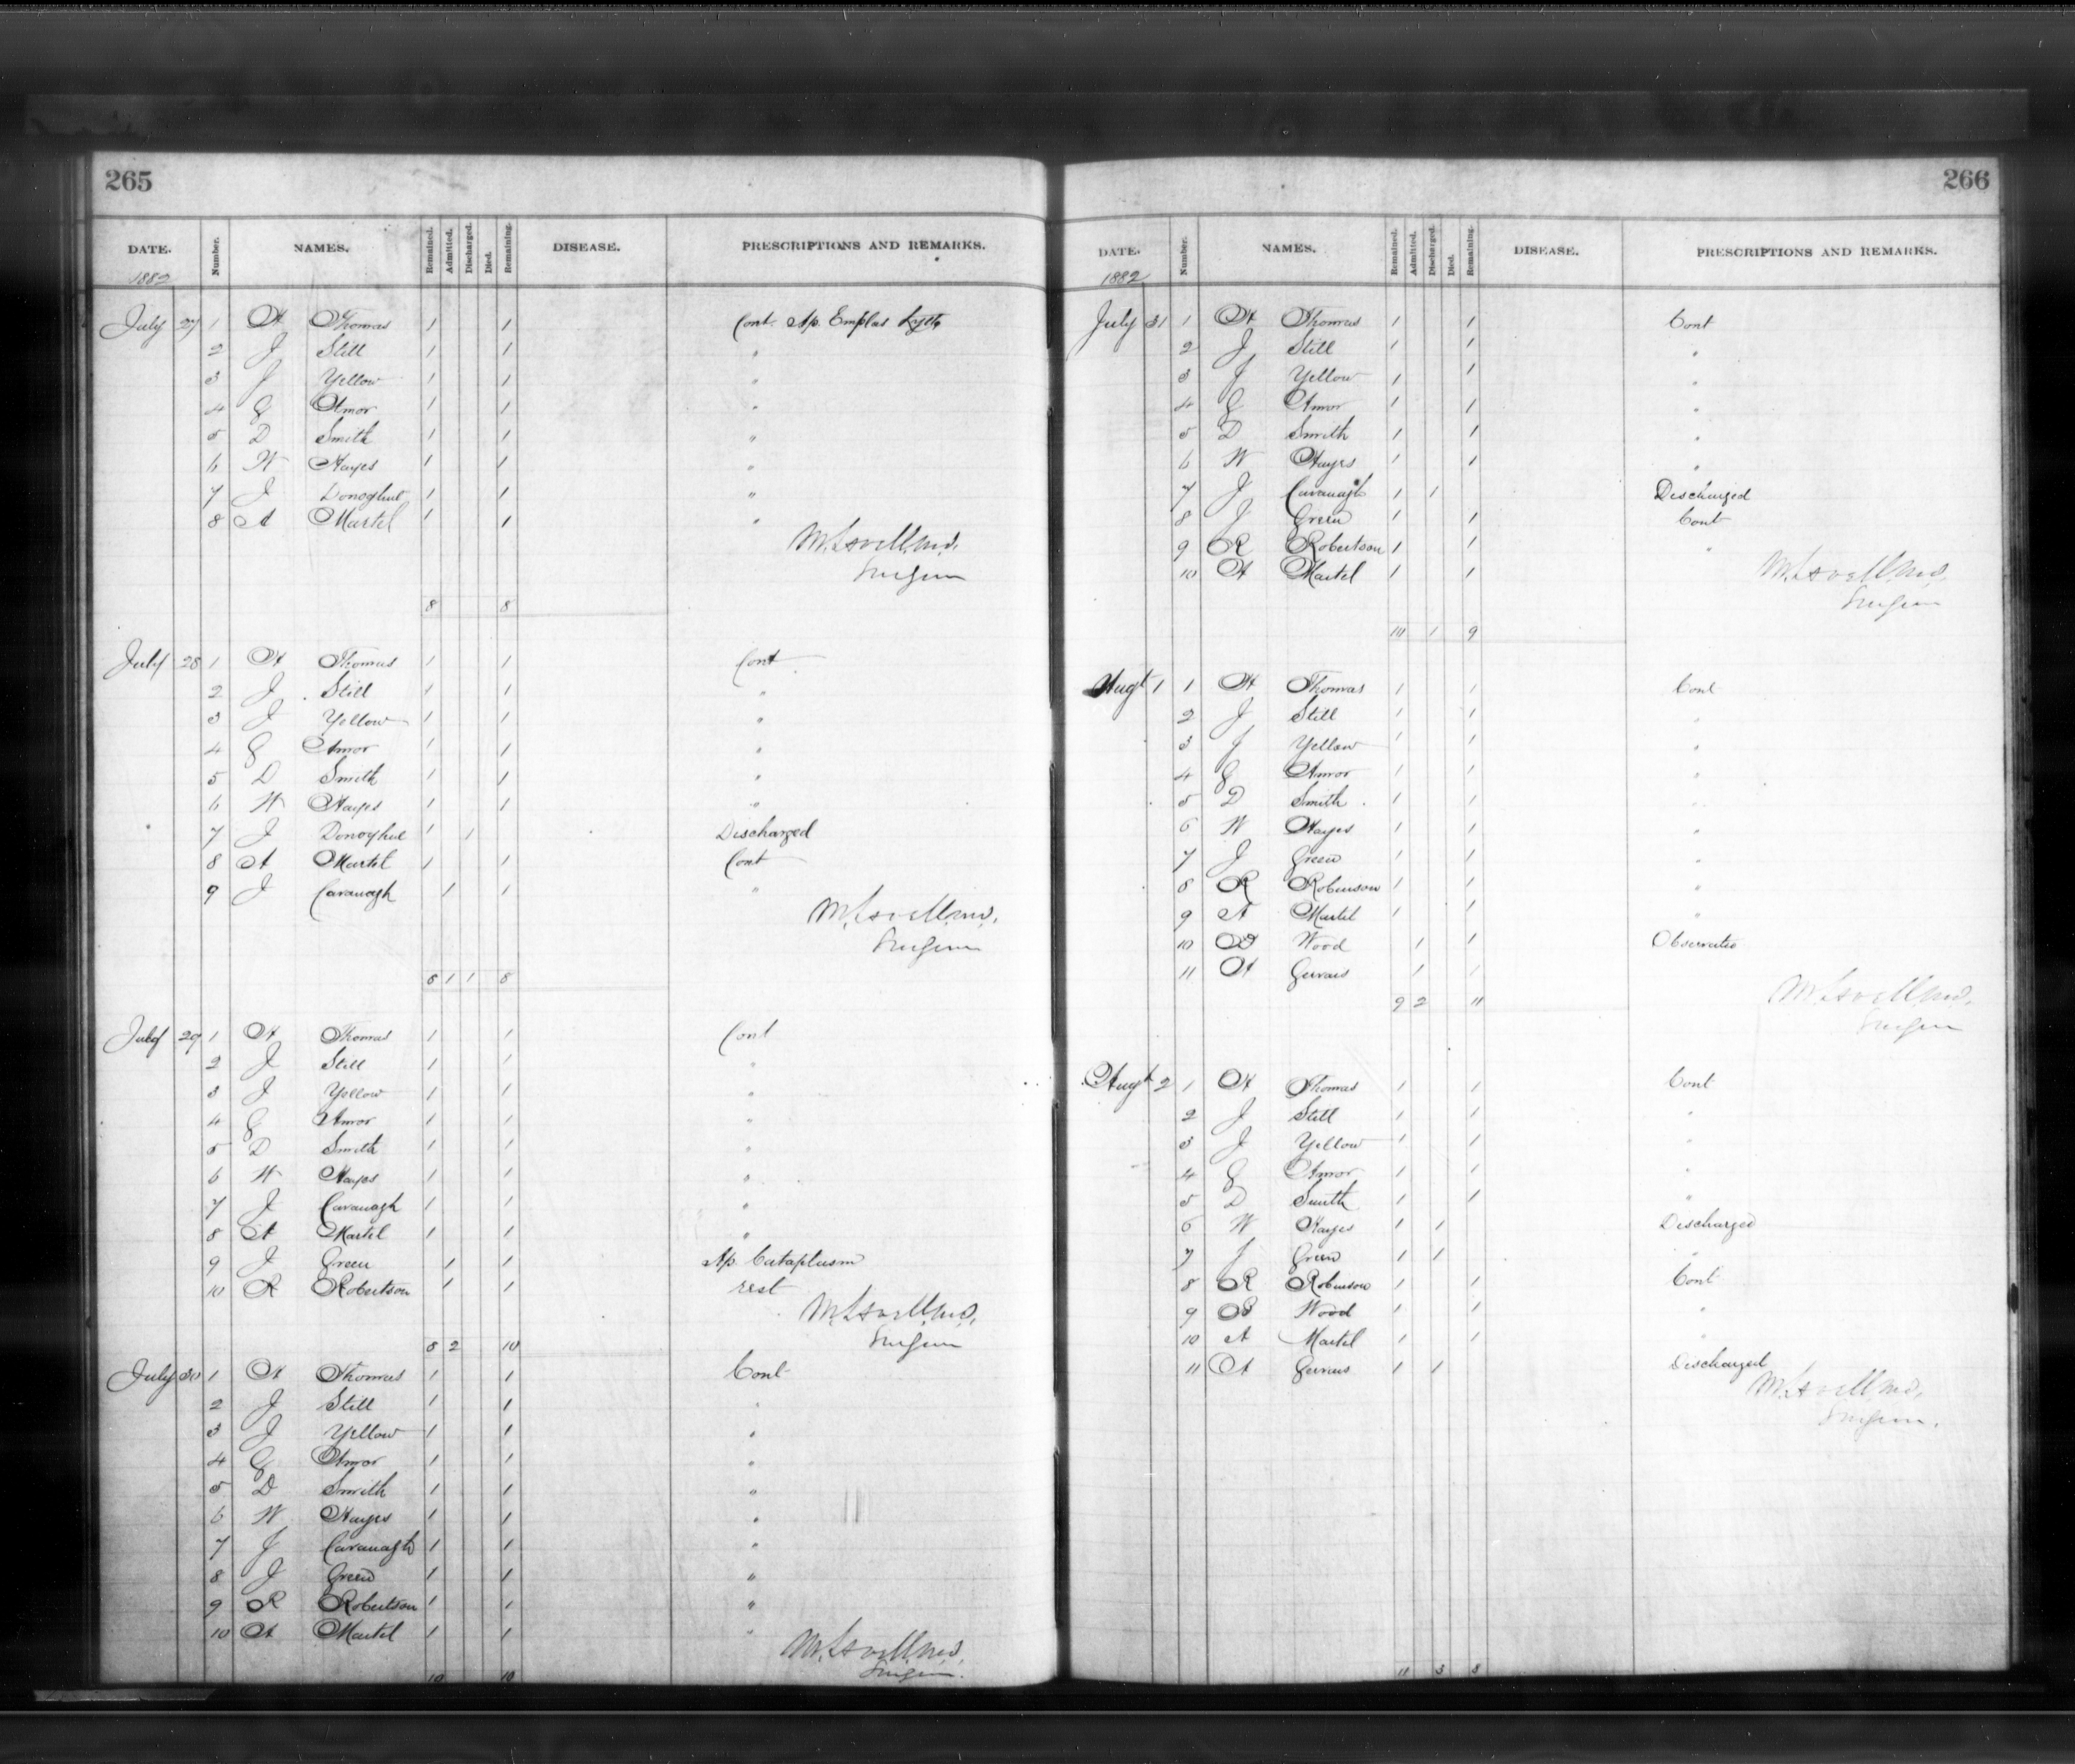 265
DATE. Number. NAMES. Remained. Admitted. Discharged. Died. Remaining. DISEASE. PRESCRIPTIONS AND REMARKS.
1882
July 27 1 Thomas 1 1 Cont. Ap. Emplas Lytt
2 J Still 1 1 "
3 J Yellow 1 1 "
4 G Amor 1 1 "
5 D Smith 1 1 "
6 W Hayes 1 1 "
7 J Donoghue 1 1 "
8 A Martel 1 1 "
Surgeon
8 8
July 28 1 Thomas 1 1 Cont
2 J Still 1 1 "
3 J Yellow 1 1 "
4 G Amor 1 1 "
5 D Smith 1 1 "
6 W Hayes 1 1 "
7 J Donoghue 1 1 Discharged
8 A Martel 1 1 Cont
9 J Cavanagh 1 1 "
Surgeon
8 1 1 8
July 29 1 Thomas 1 1 Cont
2 J Still 1 1 "
3 J Yellow 1 1 "
4 G Amor 1 1 "
5 D Smith 1 1 "
6 W Hayes 1 1 "
7 J Cavanagh 1 1 "
8 A Martel 1 1 "
9 J Green 1 1 Ap. Cataplasm
10 R Robertson 1 1 rest
Surgeon
8 2 10
July 30 1 Thomas 1 1 Cont
2 J Still 1 1 "
3 J Yellow 1 1 "
4 G Amor 1 1 "
5 D Smith 1 1 "
6 W Hayes 1 1 "
7 J Cavanagh 1 1 "
8 J Green 1 1 "
9 R Robertson 1 1 "
10 A Martel 1 1 "
Surgeon
10 10
266
DATE. Number. NAMES. Remained. Admitted. Discharged. Died. Remaining. DISEASE. PRESCRIPTIONS AND REMARKS.
1882
July 31 1 Thomas 1 1 Cont
2 J Still 1 1 "
3 J Yellow 1 1 "
4 G Amor 1 1 "
5 D Smith 1 1 "
6 W Hayes 1 1 "
7 J Cavanagh 1 1 Discharged
8 J Green 1 1 Cont
9 R Robertson 1 1 "
10 A Martel 1 1
Surgeon
10 1 9
Augt 1 1 Thomas 1 1 Cont
2 J Still 1 1 "
3 J Yellow 1 1 "
4 G Amor 1 1 "
5 D Smith 1 1 "
6 W Hayes 1 1 "
7 J Green 1 1 "
8 R Robinson 1 1 "
9 A Martel 1 1 "
10 Wood 1 1
11 A Gervais 1 1
9 2 11
Surgeon
Augt 2 1 Thomas 1 1 Cont
2 J Still 1 1 "
3 J Yellow 1 1 "
4 G Amor 1 1 "
5 D Smith 1 1 "
6 W Hayes 1 1 Discharged
7 J Green 1 1 "
8 R Robinson 1 1 Cont
9 Wood 1 1 "
10 A Martel 1 1 "
11 A Gervais 1 1 Discharged
Surgeon.
11 3 8